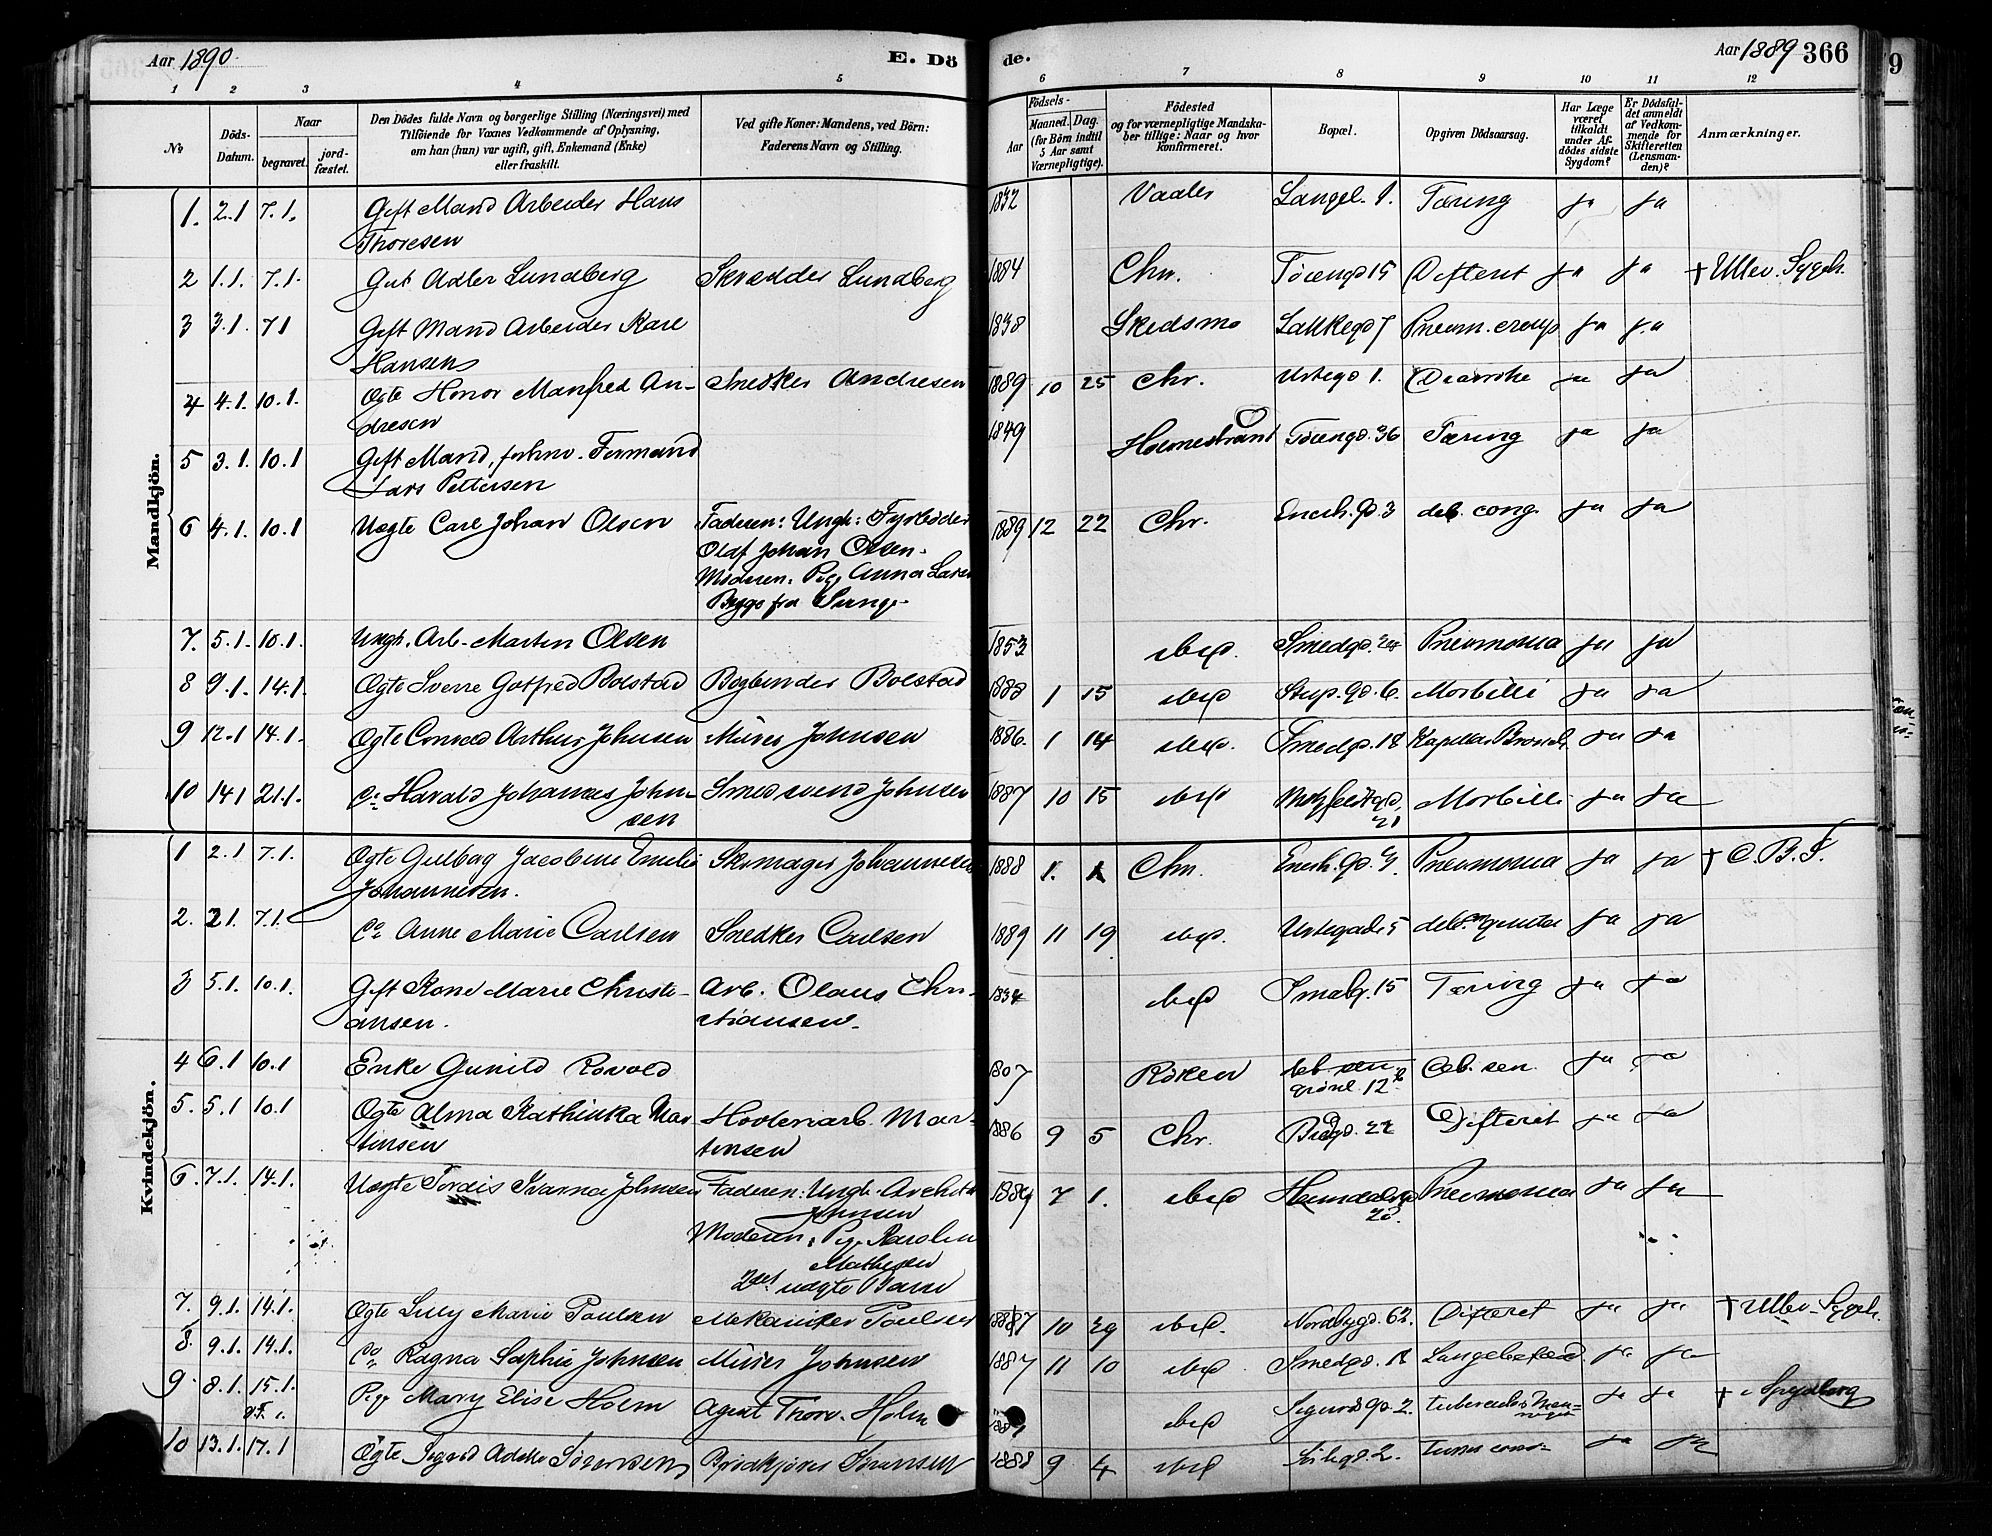 Aar 1890
E. Dö
de.
Aar 1889 366
9
1 2 3 4 5 6 7 8 9 10 11 12
No
Döds-Datum.
Naar
begravet.
jord-fæstet.
Den Dödes fulde Navn og borgerlige Stilling (Næringsvei) med
Tilföiende for Vaxnes Vedkommende af Oplysning,
om han (hun) var ugift, gift, Enkemand (Enke)
eller fraskilt.
Ved gifte Koner: Mandens, ved Börn:
Faderens Navn og Stilling.
Födsels-
Aar
Maaned. Dag.
(for Börn indtil
5 Aar samt
Værnepligtige).
Födested
og for værnepligtige Mandska-
ber tillige: Naar og hvor
konfirmeret.
Bopæl.
Opgiven Dödsaarsag.
Har Læge
været
tilkaldt
under Af-
dödes sidste
Sygdom?
Er Dödsfal-
det anmeldt
af Vedkom-
mende for
Skifteretten
(Lensman-
den)?
Anmærkninger.
Mandkjön.
1. 2.1 7.1. Gift Mand Arbeider Hans 1832 Vaaler Langel. 1. Tæring ja ja
Thoresen
2 1.1. 7.1. Gut Adler Lundberg Skrædder Lundberg 1884 Chr. Töiengd 15 Difterit ja ja † Ullev. Sygeh.
3 3.1. 7.1 Gift Mand Arbeider Karl 1838 Skedsmo Lakkegd 7 Pneum. croup ja ja
Hansen
4 4.1. 10.1. Ægte Honor Manfred An- Snedker Andresen 1889 10 25 Chr. Urtegd 1. Diarrhe ja ja
dresen
5 3.1. 10.1 Gift Mand, forhnv. Formand 1849 Holmestrand Töiengd. 36 Tæring ja ja
Lars Pettersen
6 4.1. 10.1 Uægte Carl Johan Olsen Faderen: Ungk: Fyrböder 1889 12 22 Chr. Enerh. gd. 3 deb. cong. ja ja
Olaf Johan Olsen.
Moderen: Pige Anna
fra
7. 5.1. 10.1. Ungk. Arb. Martin Olsen 1853 ibid. Smedgd. Pneumonia ja ja
8 9.1. 14.1 Ægte Sverre Gotfred Bolstad Bogbinder Bolstad 1888 1 15 ibid Stup. gd. 6. Morbilli ja ja
9 12.1 14.1. Ægte Conrad Arthur Johnsen Murer Johnsen 1886. 1 14 ibid. Smedgd. 18 Kapillær Bronch. ja ja
10 14.1 21.1. Do Harald Johannes John- Smedsvend Johnsen 1887 10 15 ibid Motzfeldtgd. Morbilli ja ja
sen 21
Kvindekjön.
1 2.1 7.1. Ægte Gulborg Jacobine Emilie Skomager Johannesen 1888 1. 1 Chr. Enerh. gd. 9 Pneumonia ja ja † C. B. S.
Johannesen.
2. 2.1. 7.1. Do Anne Marie Carlsen Snedker Carlsen 1889 11 19 ibid. Urtegade 5 debt. congenita ja ja
3 5.1. 10.1. Gift Kone Marie Christi- Arb. Olaus Chri- 1834 ibid Smalg. 15 Tæring ja ja
ansen. stiansen.
4 6.1 10.1 Enke Gunild Rovold 1807 Röken deb. sen. Deb. sen. ja ja
Grönl. 12 b
5. 5.1 10.1 Ægte Alma Kathinka Mar- Hovleriarb. Mar- 1886 9 5 Chr. 22 Difterit ja ja
tinsen tinsen
6. 7.1. 14.1. Uægte Tordis Johnsen Faderen: Ungk. 1889 7 1. ibid Heimdalsgd Pneumonia ja ja
Johnsen 20.
Moderen: Pige Karoline
Mathisen
2det uægte Barn
7. 9.1. 14.1. Ægte Lilly Marie Paulsen Mekaniker Paulsen 1887 10 29 ibid. Nordbygd. 62. Difterit ja ja † Ullev. Sygeh.
8. 9.1. 14.1. Do Ragna Sophie Johnsen Murer Johnsen 1887 11 10 ibid Smedgd. 18 ja ja
9 8.1. 15.1. Pige Mary Elise Holm Agent Thorv. Holm ibid Sigurds gd. 2. tuberculøs Men- ja ja † i Spydeberg
10 13.1. 17.1 Ægte Sigrid Adele Sörensen Brödkjörer Sörensen 1888 9 4 ibid 2. Tussis conv. ja ja